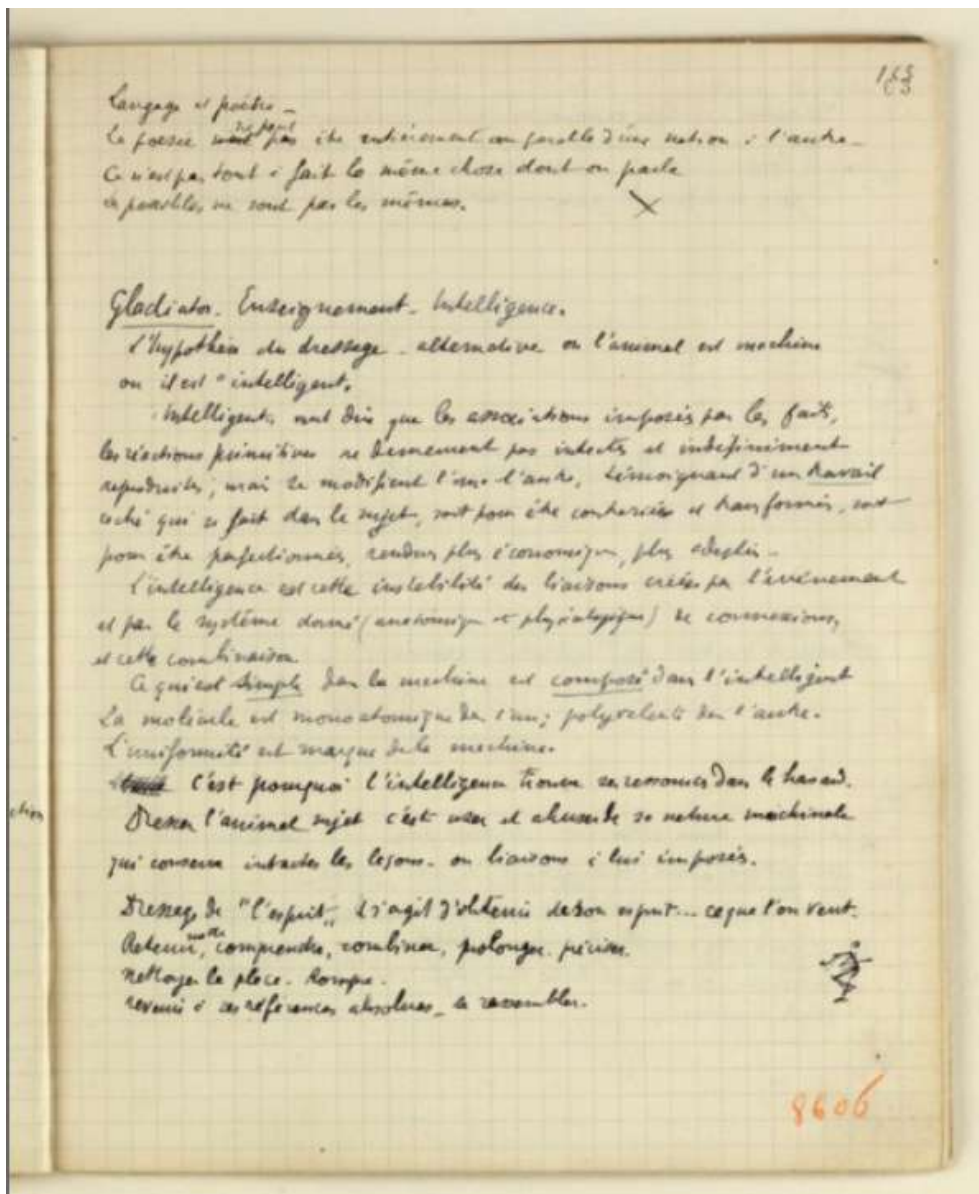 Langage et poésie _
La poésie ne peut pas être entièrement comparable d'une nation à l'autre _
Ce n'est pas tout à fait la même chose dont on parle
possibles ne sont pas les mêmes.
Gladiator. Enseignement. Intelligence.
L'hypothèse du dressage _ alternative ou l'animal est machine
ou il est "intelligent.
Intelligent, veut dire que les associations imposées par les faits,
les réactions primitives ne demeurent pas intactes et indéfiniment
reproduites, mais se modifient l'une l'autre, témoignant d'un travail
caché qui se fait dans le sujet, soit pour être contrariées et transformées, soit
pour être perfectionnées, rendues plus économiques, plus adaptées _
L'intelligence est cette instabilité des liaisons créées par l'événement
et par le système donné (anatomique et physiologique) de connexions,
et cette combinaison
Ce qui est simple dans la machine est composé dans l'intelligent
La molécule est monoatomique dans l'un; polyvalente dans l'autre.
L'uniformité est marque de la machine.
C'est pourquoi l'intelligence trouve ses ressources dans le hasard.
Dresser l'animal sujet c'est user et abuser de sa nature machinale
qui conserve intactes les leçons _ ou liaisons à lui imposées.
Dressage de "l'esprit„ Il s'agit d'obtenir de son esprit... ce que l'on veut.
Retenir, comprendre, combiner, prolonger. préciser.
nettoyer la place. Rompre.
revenir à ces références absolues _ se rassembler.
8606